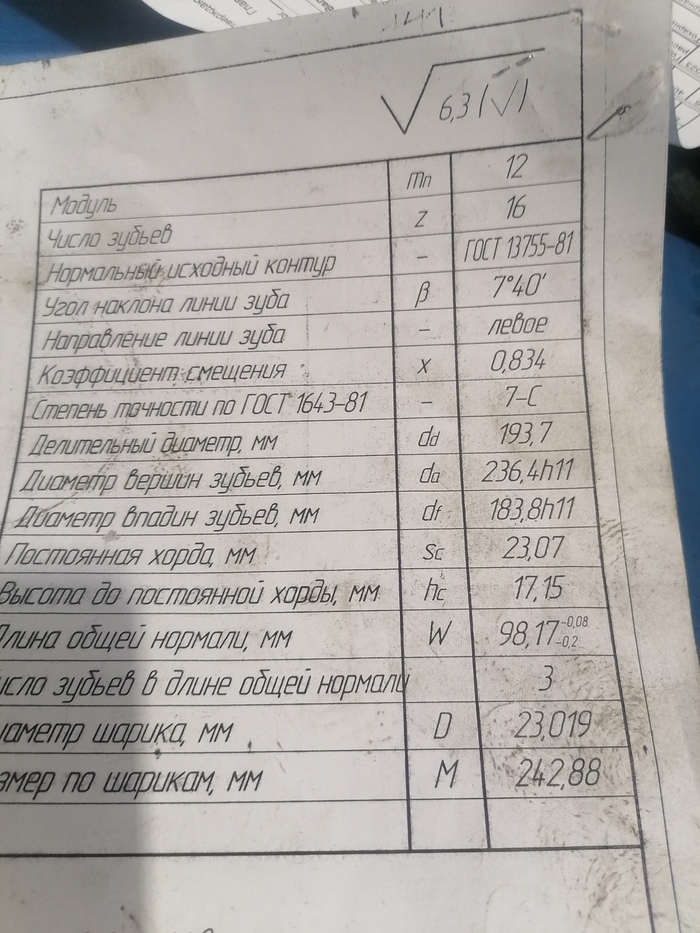 6,3 (√)
Модуль mn 12
Число зубьев z 16
Нормальный исходный контур – ГОСТ 13755-81
Угол наклона линии зуба β 7°40'
Направление линии зуба – левое
Коэффициент смещения x 0,834
Степень точности по ГОСТ 1643-81 – 7-С
Делительный диаметр, мм dd 193,7
Диаметр вершин зубьев, мм da 236,4h11
Диаметр впадин зубьев, мм df 183,8h11
Постоянная хорда, мм Sc 23,07
Высота до постоянной хорды, мм hc 17,15
Длина общей нормали, мм W 98,17 -0,08 -0,2
исло зубьев в длине общей нормали 3
иаметр шарика, мм D 23,019
змер по шарикам, мм M 242,88